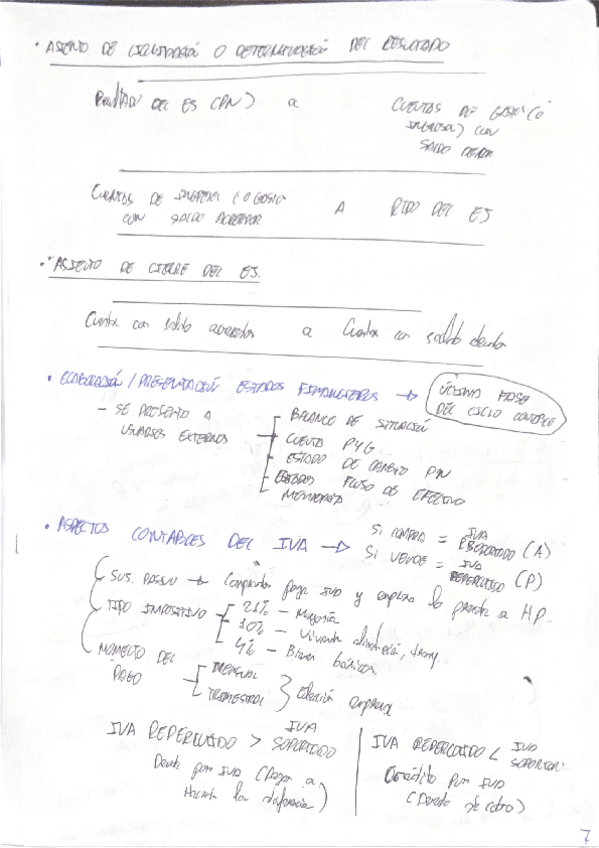 • ASIENTO DE LIQUIDACIÓN O DETERMINACIÓN DEL RESULTADO
Resultado DEL ES (PN) a CUENTAS DE GASTOS (O
INGRESOS) CON
SALDO DEUDOR
CUENTAS DE INGRESOS (O GASTOS)
CON SALDO ACREEDOR A RTDO DEL ES
• ASIENTO DE CIERRE DEL ES.
Cuentas con saldo acreedor a Cuentas con saldo deudor
• ELABORACIÓN / PRESENTACIÓN ESTADOS FINANCIEROS → ÚLTIMA FASE
DEL CICLO CONTABLE
- SE PRESENTA A
USUARIOS EXTERNOS →
- BALANCE DE SITUACIÓN
- CUENTA PYG
- ESTADO DE CAMBIO PN
- ESTADOS FLUJO DE EFECTIVO
- MEMORIA
• ASPECTOS CONTABLES DEL IVA → SI COMPRA = IVA
SOPORTADO (A)
SI VENDE = IVA
REPERCUTIDO (P)
SUJ. PASIVO → Comprador paga IVA y empresa lo presenta a HP
TIPO IMPOSITIVO - 21% - Mayoría
- 10% - Vivienda, alimentación, transp.
- 4% - Bienes básicos
MOMENTO DEL
PAGO → MENSUAL
TRIMESTRAL } Elección empresa
IVA REPERCUTIDO > IVA
SOPORTADO
Deuda por IVA (Pagar a
Hacienda la diferencia)
IVA REPERCUTIDO < IVA
SOPORTADO
Crédito por IVA
(Derecho de cobro)
7